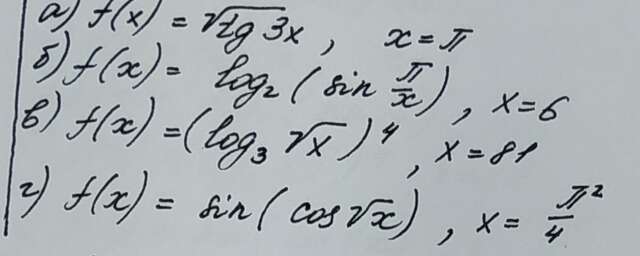 а) f(x) = √tg 3x , x = π
б) f(x) = log₂ (sin π/x) , x = 6
в) f(x) = (log₃ √x)⁴ , x = 81
г) f(x) = sin (cos √x) , x = π²/4